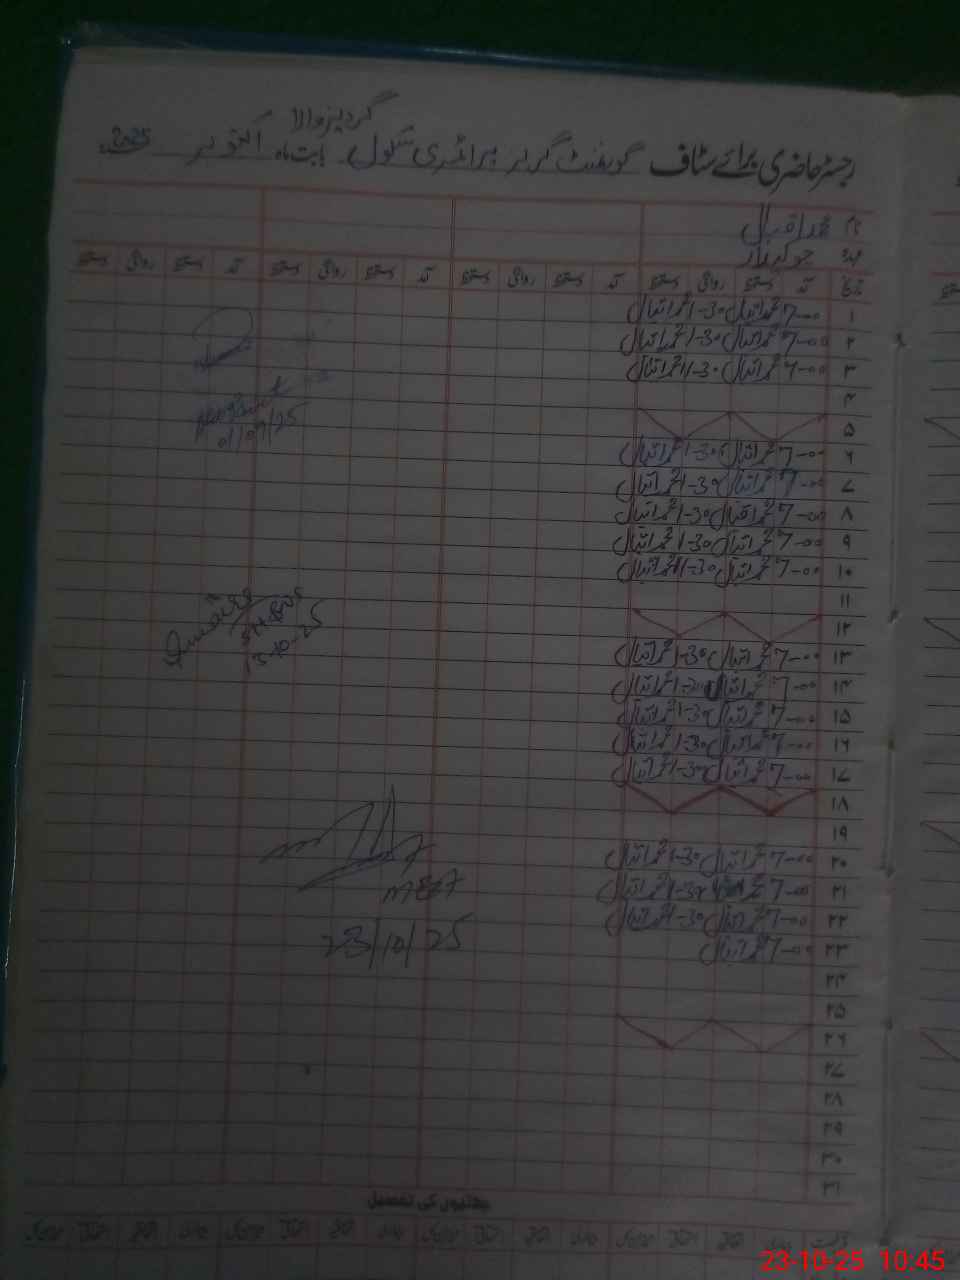 گردیزوالا
رجسٹر حاضری برائے سٹاف گورنمنٹ گرلز پرائمری سکول بابت ماہ اکتوبر 2025
نام محمد اقبال
عہدہ چوکیدار
تاریخ آمد دستخط روانگی دستخط آمد دستخط روانگی دستخط آمد دستخط روانگی دستخط آمد دستخط روانگی دستخط
۱ 7-00 محمد اقبال 1-30 محمد اقبال
۲ 7-00 محمد اقبال 1-30 محمد اقبال
۳ 7-00 محمد اقبال 1-30 محمد اقبال
۴
۵
01/09/25
۶ 7-00 محمد اقبال 1-30 محمد اقبال
۷ 7-00 محمد اقبال 1-30 محمد اقبال
۸ 7-00 محمد اقبال 1-30 محمد اقبال
۹ 7-00 محمد اقبال 1-30 محمد اقبال
۱۰ 7-00 محمد اقبال 1-30 محمد اقبال
۱۱
۱۲
۱۳ 7-00 محمد اقبال 1-30 محمد اقبال
13-10-25
۱۴ 7-00 محمد اقبال 1-30 محمد اقبال
۱۵ 7-00 محمد اقبال 1-30 محمد اقبال
۱۶ 7-00 محمد اقبال 1-30 محمد اقبال
۱۷ 7-00 محمد اقبال 1-30 محمد اقبال
۱۸
۱۹
۲۰ 7-00 محمد اقبال 1-30 محمد اقبال
۲۱ 7-00 محمد اقبال 1-30 محمد اقبال
MEA
۲۲ 7-00 محمد اقبال 1-30 محمد اقبال
۲۳ 7-00 محمد اقبال
23/10/25
۲۴
۲۵
۲۶
۲۷
۲۸
۲۹
۳۰
۳۱
چھٹیوں کی تفصیل
23-10-25 10:45